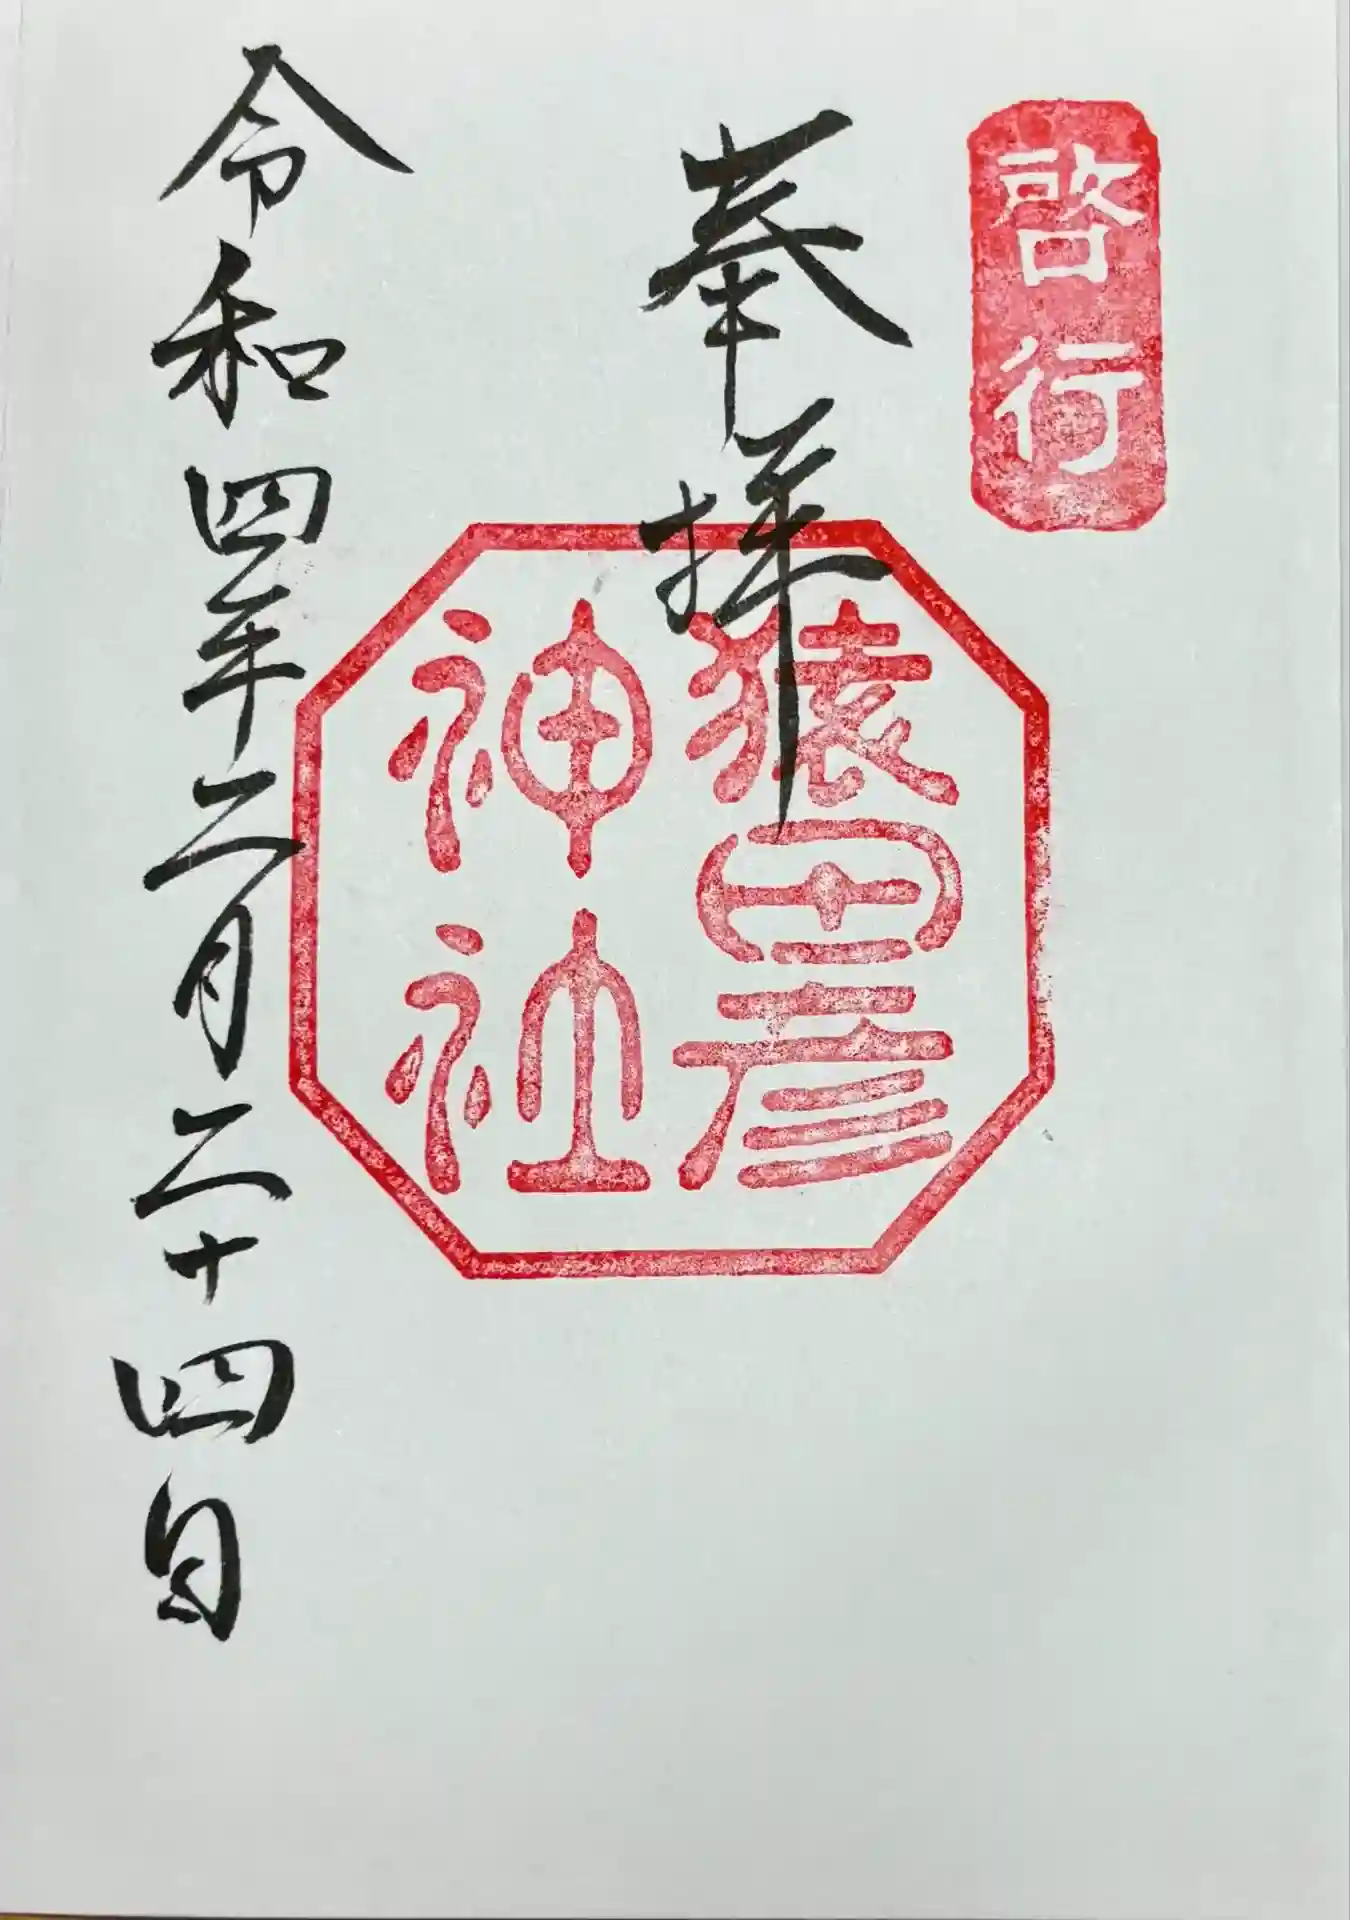 啓行
奉拝
猿田彦
神社
令和四年二月二十四日